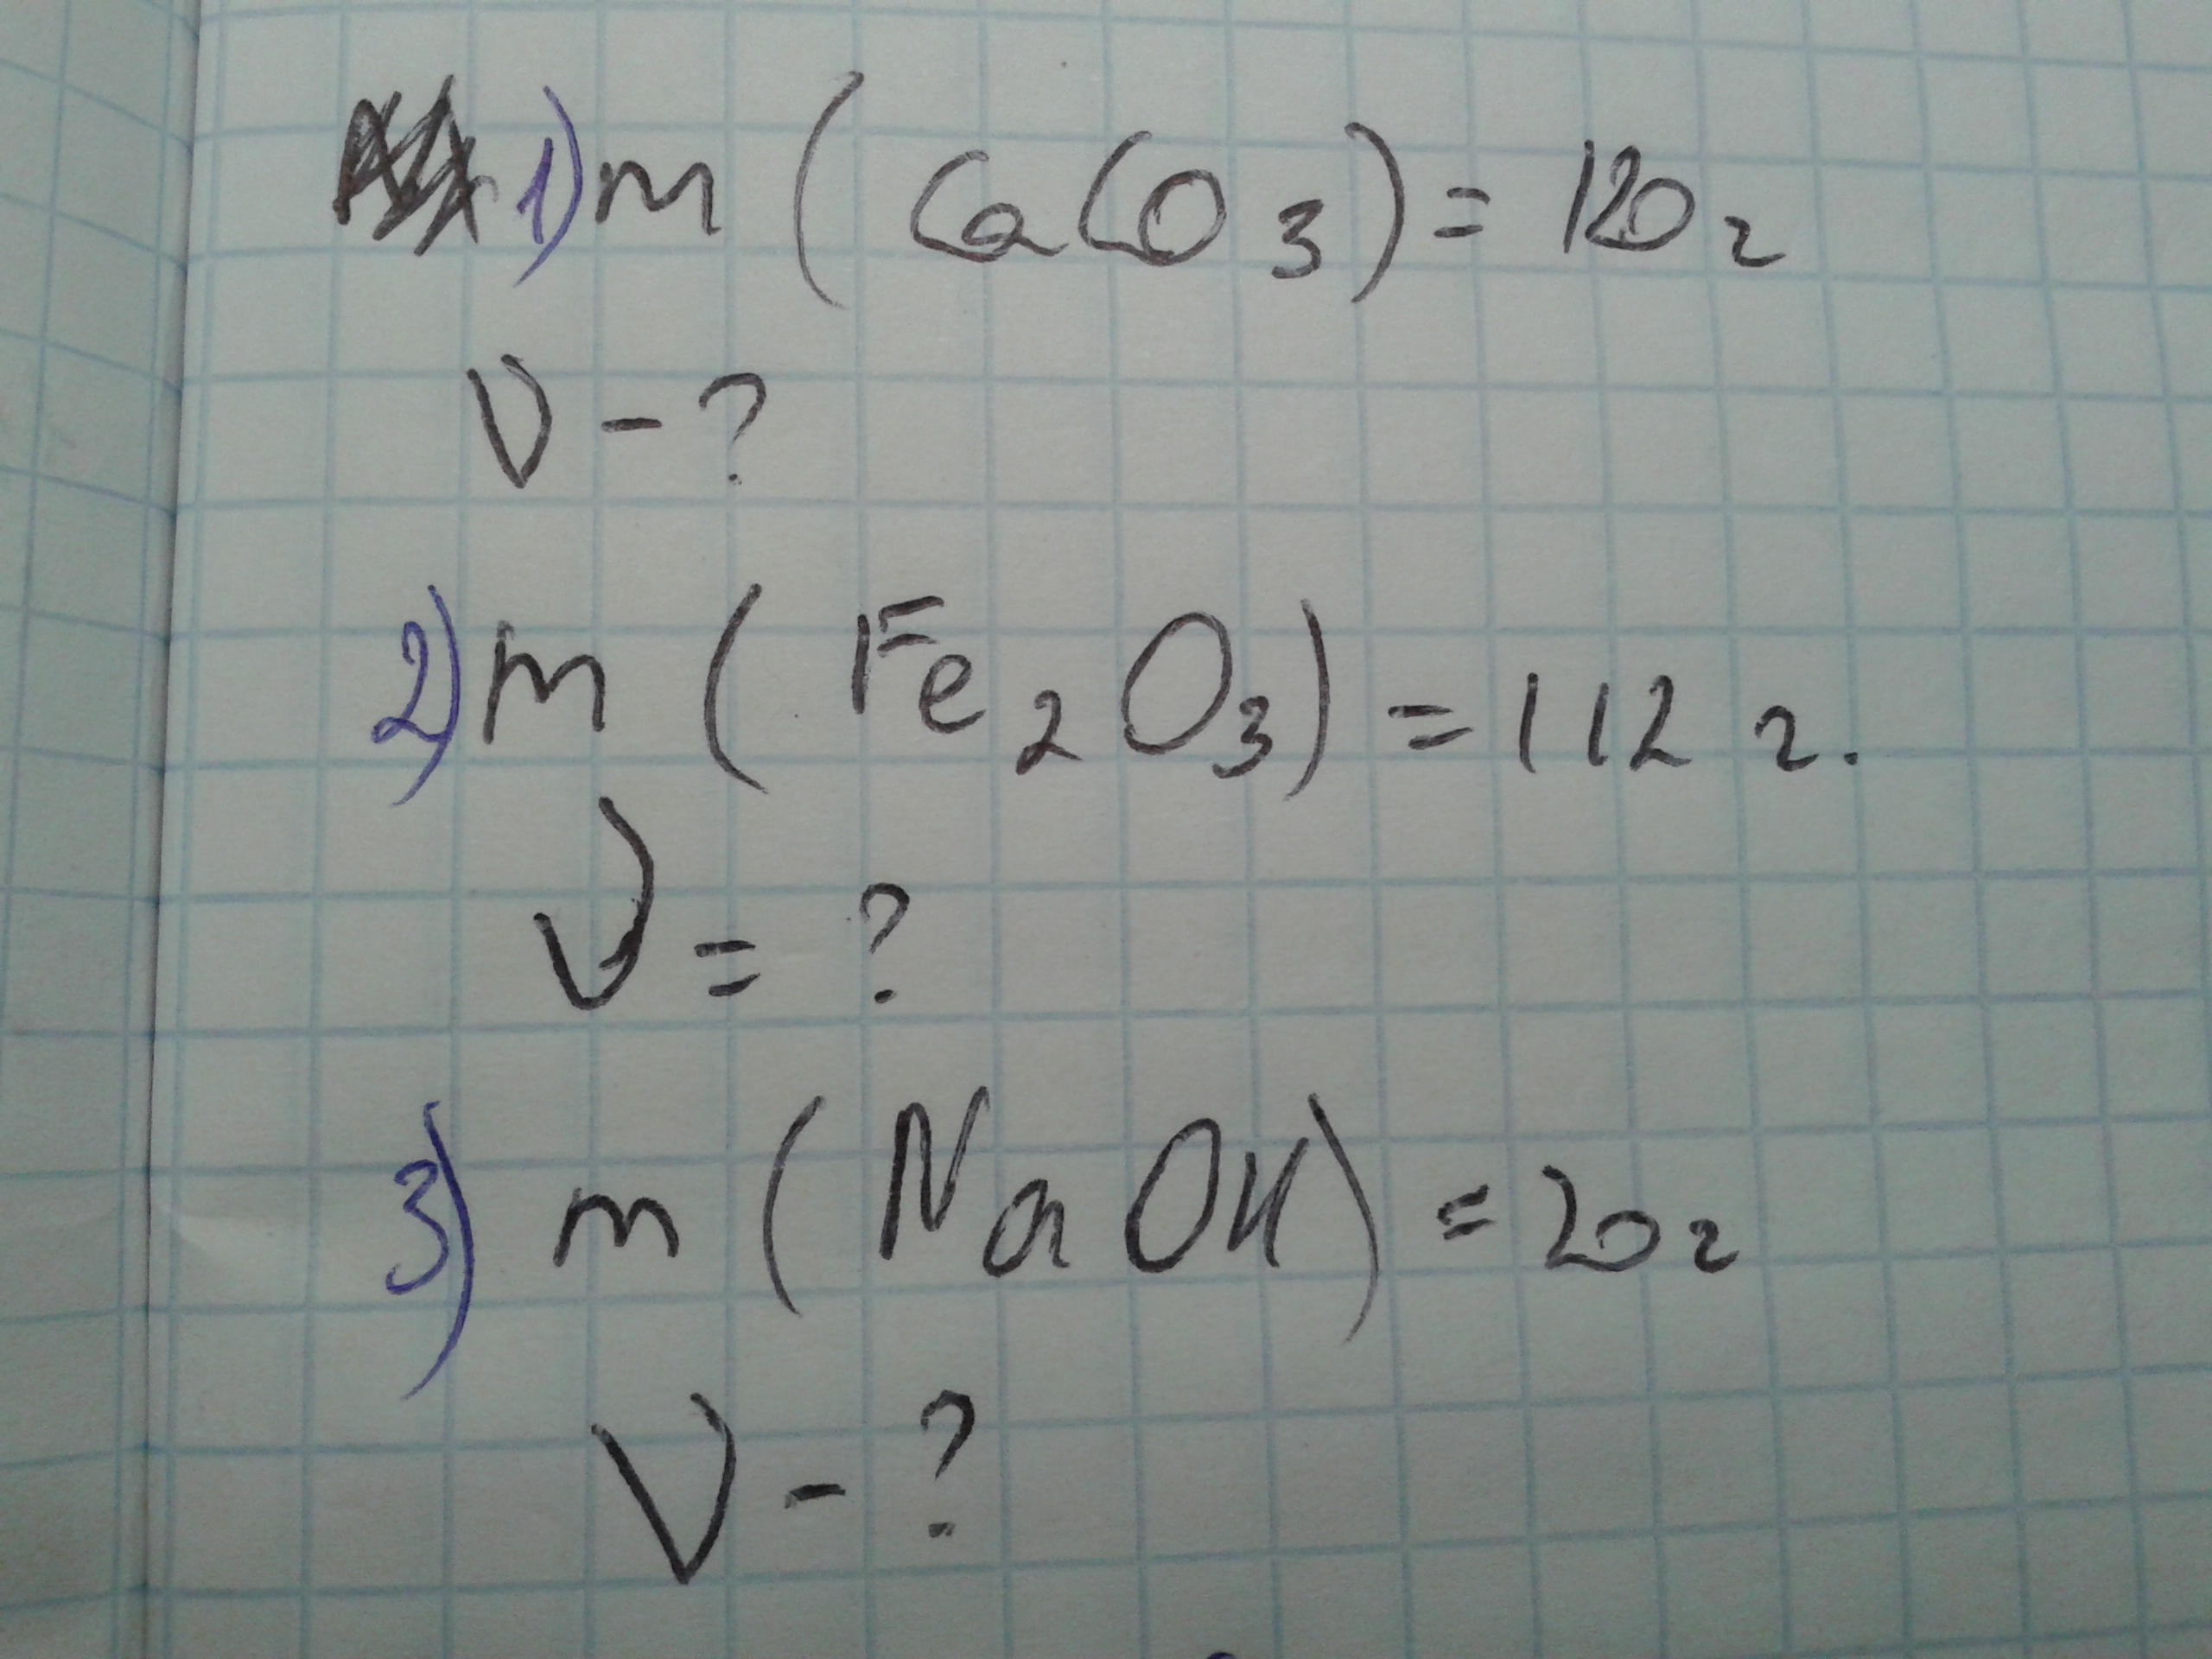 1) m (CaCO3) = 120 г
ν - ?
2) m (Fe2O3) = 112 г.
ν = ?
3) m (NaOH) = 20 г
ν - ?